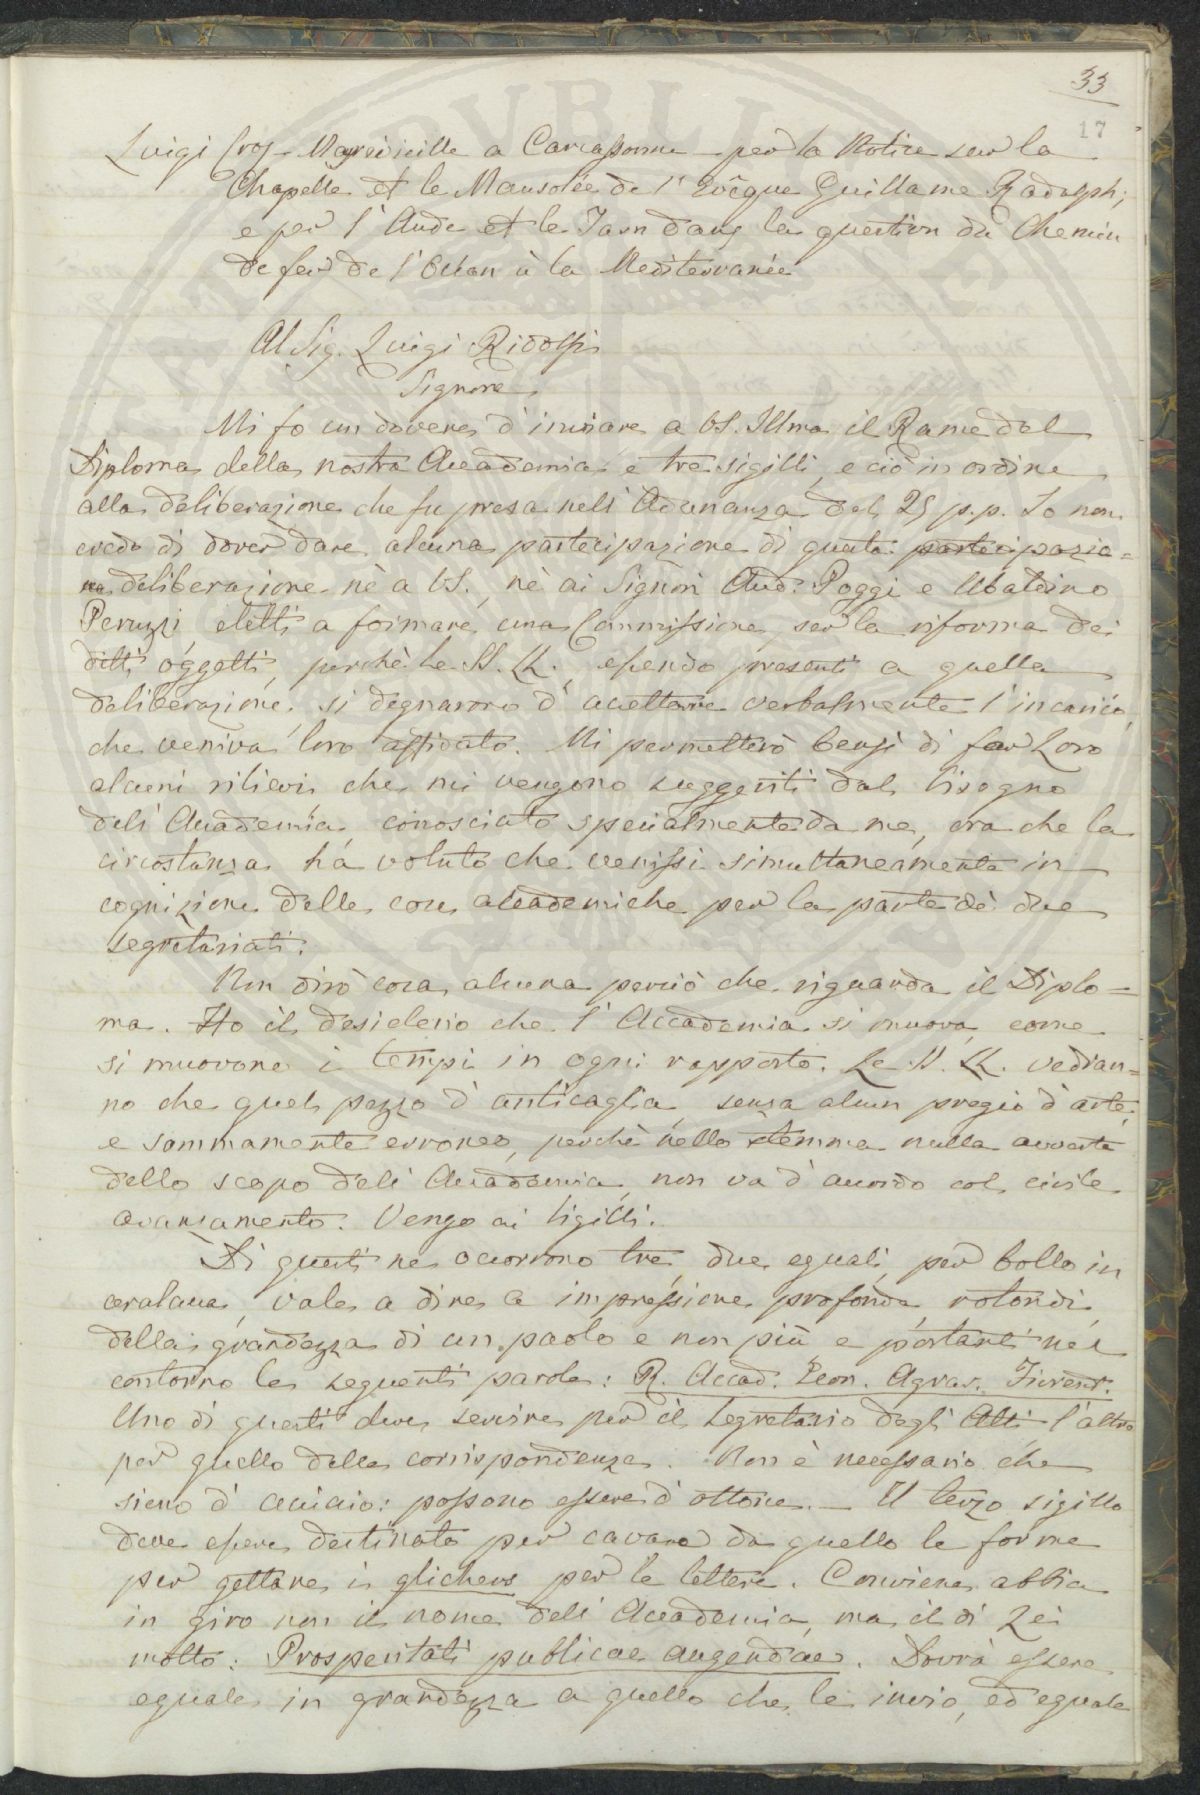 33
17
Luigi Cros-Mayrevieille a Carcassonne per la Notice sur la
Chapelle et le Mausolée de l'Evêque Guillame Radulph;
e per l'Aude et le Tarn dans la question du Chemin
de fer de l'Océan à la Mediterranée
Al Sig. Luigi Ridolfi
Signore
Mi fo un dovere d'inviare a VS. Illma il Rame del
Diploma della nostra Accademia e tre sigilli, e ciò in ordine
alla deliberazione che fu presa nell'Adunanza del 25 p.p. Io non
credo di dover dare alcuna partecipazione di questa partecipazio=
ne deliberazione nè a VS., nè ai Signori Aud. Poggi e Ubaldino
Peruzzi eletti a formare una Commissione per la riforma dei
ditti oggetti, perchè Le SS. LL., essendo presenti a quella
deliberazione, si degnarono d'accettare verbalmente l'incarico,
che veniva loro affidato. Mi permetterò bensì di far Loro
alcuni rilievi, che mi vengono suggeriti dal bisogno
dell'Accademia, conosciuto specialmente da me, ora che la
circostanza ha voluto che venissi simultaneamente in
cognizione delle cose accademiche per la parte de' due
segretariati.
Non dirò cosa alcuna perciò che riguarda il Diplo=
ma. Ho il desiderio che l'Accademia si muova, come
si muovono i tempi in ogni rapporto. Le SS. LL. vedran=
no che quel pezzo d'anticaglia, senza alcun pregio d'arte,
e sommamente erroneo, perchè nello stemma nulla avverte
dello scopo dell'Accademia, non va d'accordo col civile
avanzamento. Vengo ai sigilli.
Di questi ne occorrono tre, due eguali, per bollo in
ceralacca, vale a dire a impressione profonda rotondi,
della grandezza di un paolo e non più e portanti nel
contorno le seguenti parole: R. Accad. Econ. Agrar. Fiorent.
Uno di questi deve servire per il segretario degli Atti, l'altro
per quello delle corrispondenze. Non è necessario che
sieno d'acciaio: possono essere d'ottone. — Il terzo sigillo
deve essere destinato per cavare da quello le forme
per gettare i glichers per le lettere. Conviene abbia
in giro non il nome dell'Accademia, ma il di Lei
motto: Prosperitati publicae augendae. Dovrà essere
eguale in grandezza a quello che le invio, ed eguale